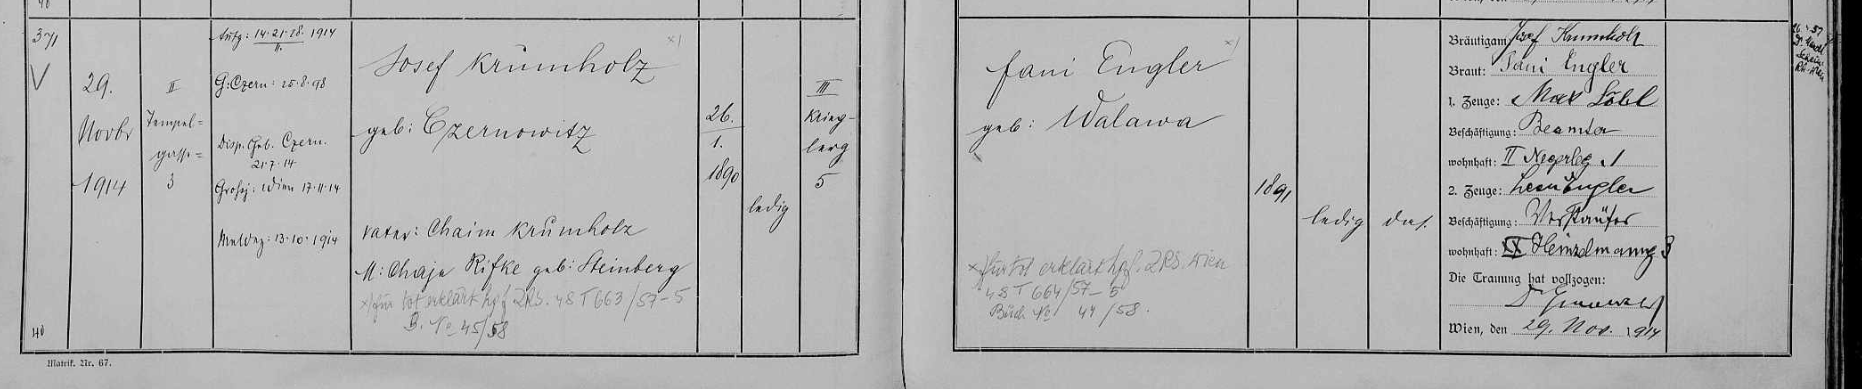 371
29.
Novbr
1914
II
Tempel=
gasse=
3
Aufg: 14.21.28. 1914
11.
G: Czern: 25.8.98
Disp. Geb. Czern.
21.7.14
Grosj: Wien 17.11.14
Meldez: 13.10.1914
Josef Krumholz x)
geb: Czernowitz
Vater: Chaim Krumholz
M: Chaje Rifke geb: Steinberg
x) für tot erklärt 48 T 663/57-5
B. No 45/58
26.
1.
1890
ledig
III
Krieg-
lerg
5
40
Matrik. Nr. 67.
Fani Engler x)
geb: Walawa
x) für tot erklärt Wien
48 T 664/57-5
Buch No 44/58.
1891
ledig
das.
Bräutigam Josef Krumholz
Braut: Fani Engler
1. Zeuge: Max Löbl
Beschäftigung: Beamter
wohnhaft: II 1
2. Zeuge: Leon Engler
Beschäftigung: Verkäufer
wohnhaft: XX Heinzelmanng 3
Die Trauung hat vollzogen:
Wien, den 29. Nov. 1914